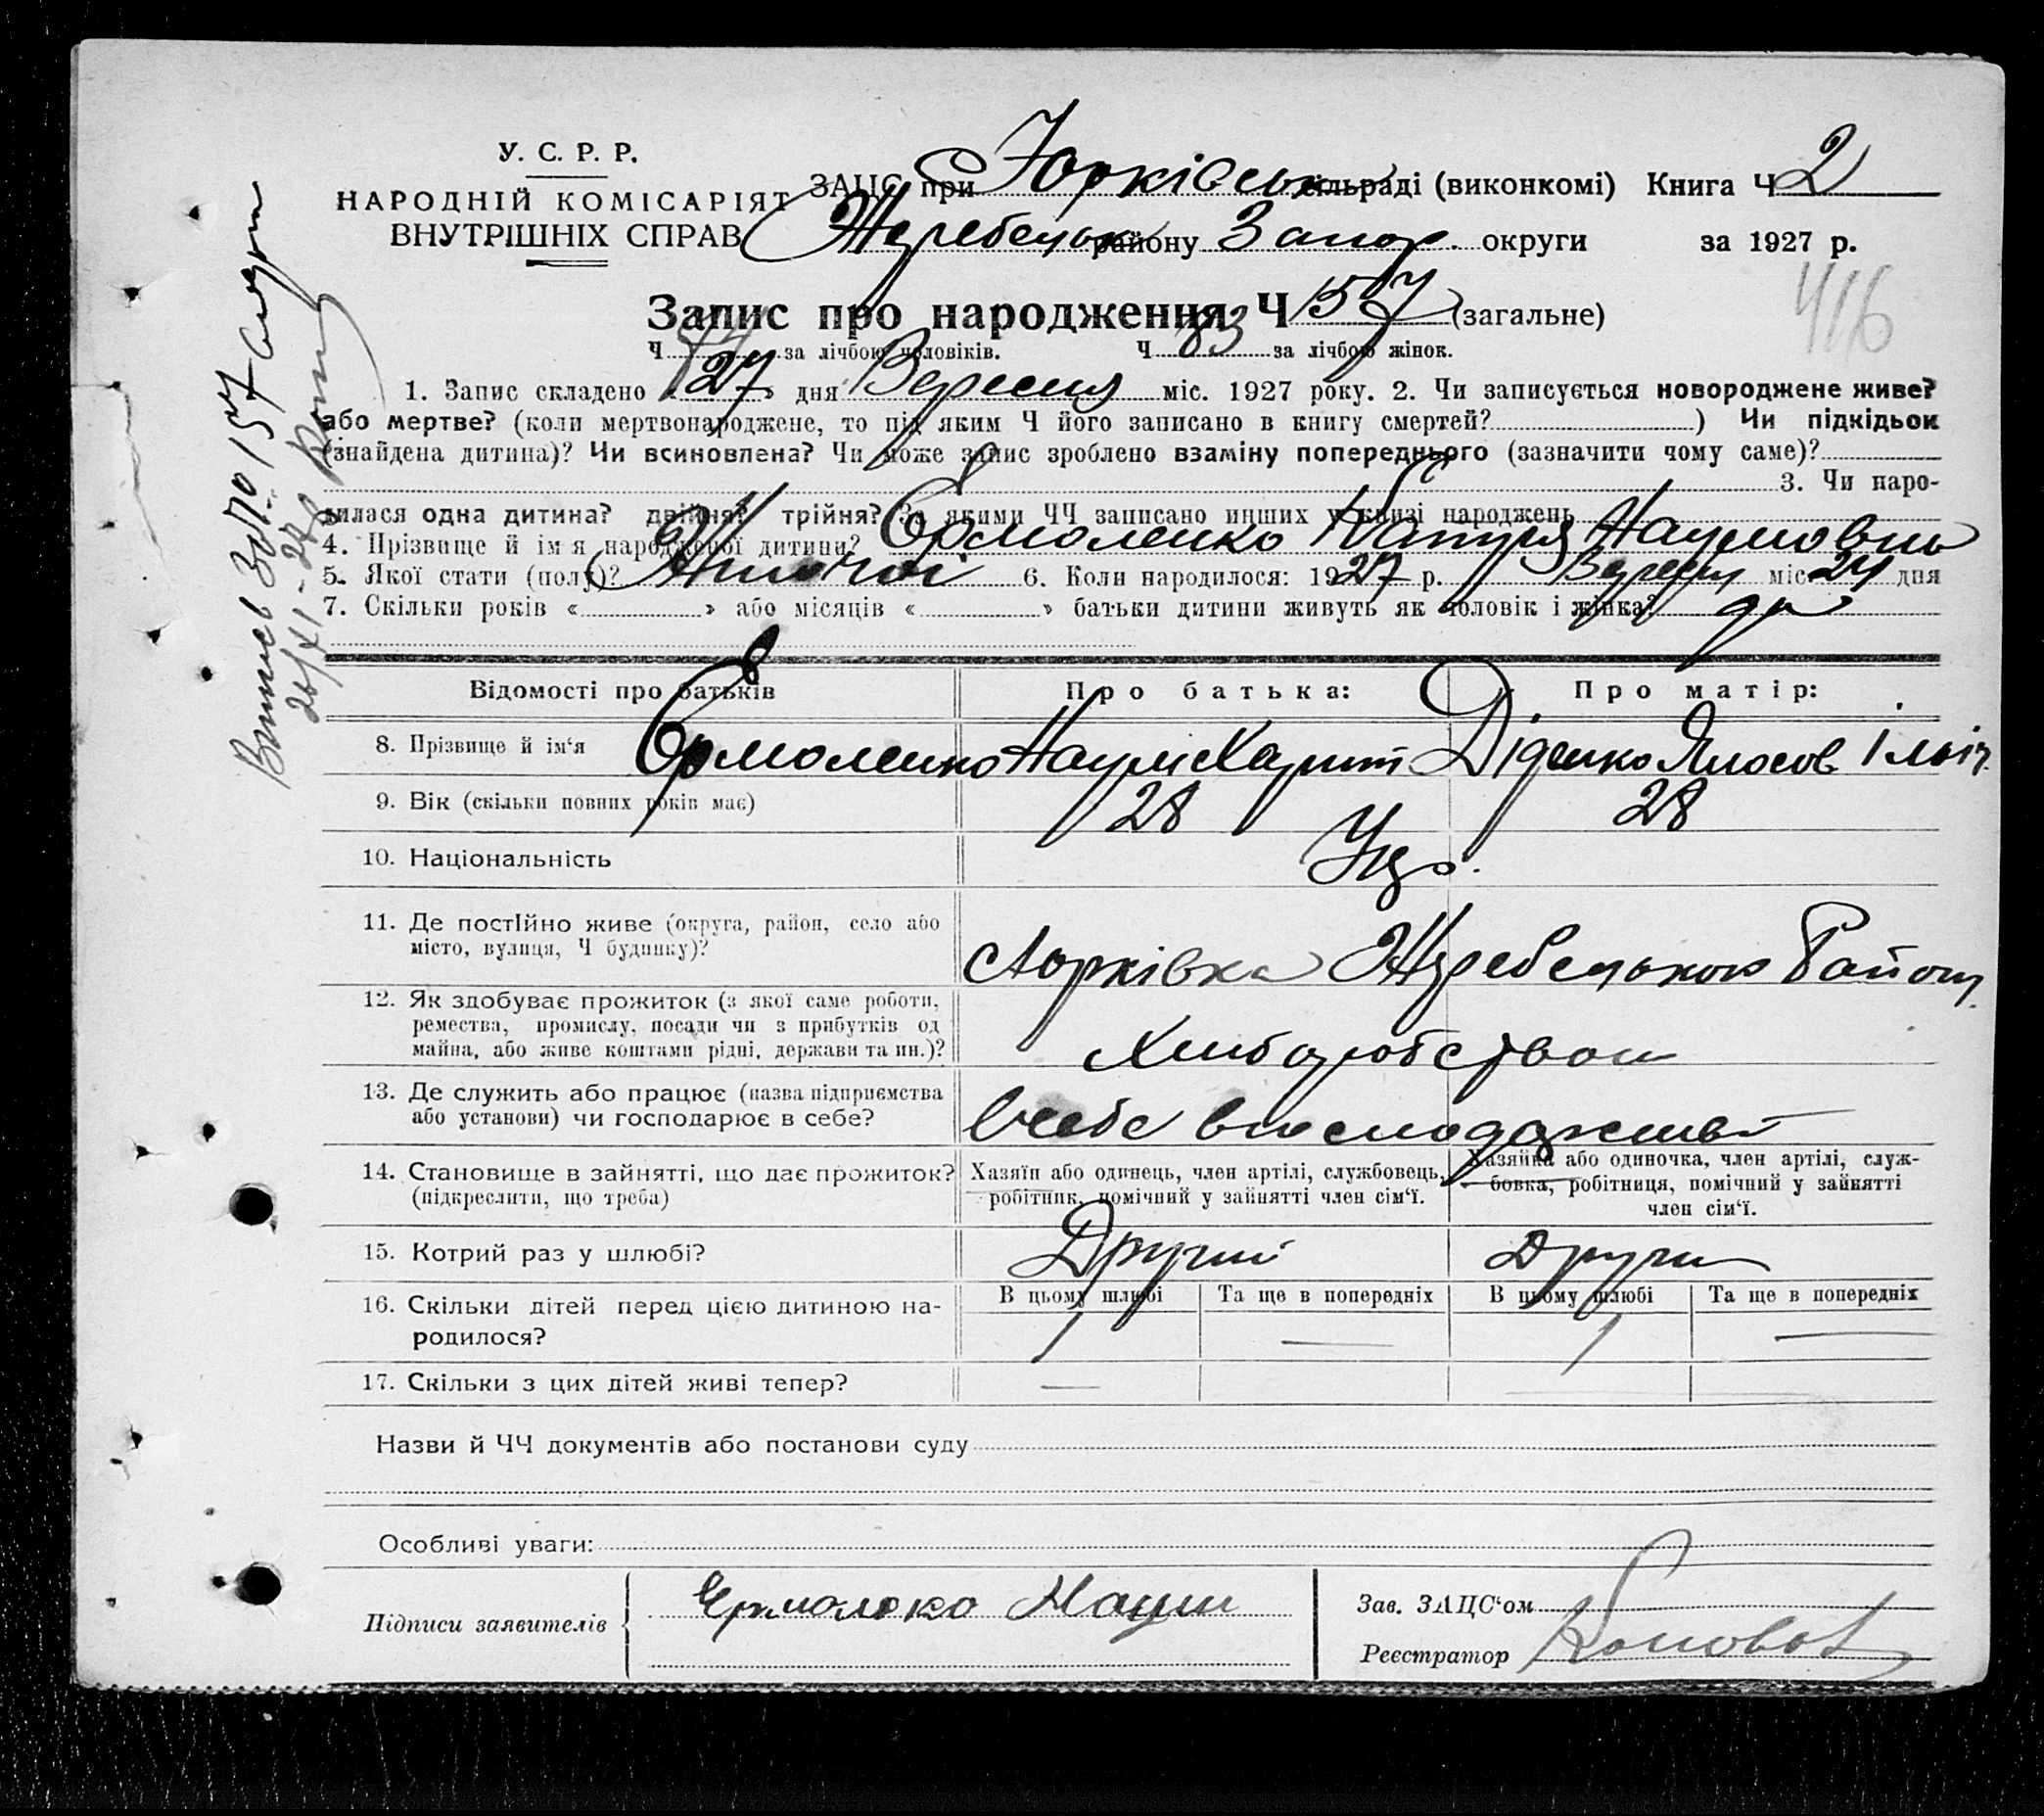 У. С. Р. Р.
НАРОДНІЙ КОМІСАРІЯТ
ВНУТРІШНІХ СПРАВ
ЗАЦС при Юрківськ сільраді (виконкомі) Книга Ч 2
Жеребецьк району Запор. округи за 1927 р.
416
Запис про народження Ч 157 (загальне)
Ч 74 за лічбою чоловіків. Ч 83 за лічбою жінок.
1. Запис складено « 27 » дня Вересня міс. 1927 року. 2. Чи записується новороджене живе?
або мертве? (коли мертвонароджене, то під яким Ч його записано в книгу смертей? ) Чи підкідьок
(знайдена дитина)? Чи всиновлена? Чи може запис зроблено взаміну попереднього (зазначити чому саме)?
3. Чи наро-
дилася одна дитина? двійня? трійня? За якими ЧЧ записано инших у книзі народжень
4. Прізвище й ім'я народженої дитини? Єрмоленко Наумовна
5. Якої стати (полу)? Жіночої 6. Коли народилося: 1927 р. Вересня міс 24 дня
7. Скільки років « » або місяців « » батьки дитини живуть як чоловік і жінка?
Відомості про батьків Про батька: Про матір:
8. Прізвище й ім'я Єрмоленко Наум Харит Діденко Ільїч.
9. Вік (скільки повних років має) 28 28
10. Національність Укр.
11. Де постійно живе (округа, район, село або
місто, вулиця, Ч будинку)?
Юрківка Жеребецького Району
12. Як здобуває прожиток (з якої саме роботи,
ремества, промислу, посади чи з прибутків од
майна, або живе коштами рідні, держави та ин.)?
Хлиборобством
13. Де служить або працює (назва підприємства
або установи) чи господарює в себе?
в себе в господарстві
14. Становище в зайнятті, що дає прожиток?
(підкреслити, що треба)
Хазяїн або одинець, член артілі, службовець,
робітник, помічний у зайнятті член сім'ї.
Хазяйка або одиночка, член артілі, служ-
бовка, робітниця, помічний у зайнятті
член сім'ї.
15. Котрий раз у шлюбі? Другий Други
16. Скільки дітей перед цією дитиною на-
родилося?
В цьому шлюбі Та ще в попередніх В цьому шлюбі Та ще в попередніх
1 — 1 —
17. Скільки з цих дітей живі тепер? —
Назви й ЧЧ документів або постанови суду
Особливі уваги:
Підписи заявителів
Наум
Зав. ЗАЦС'ом
Реєстратор